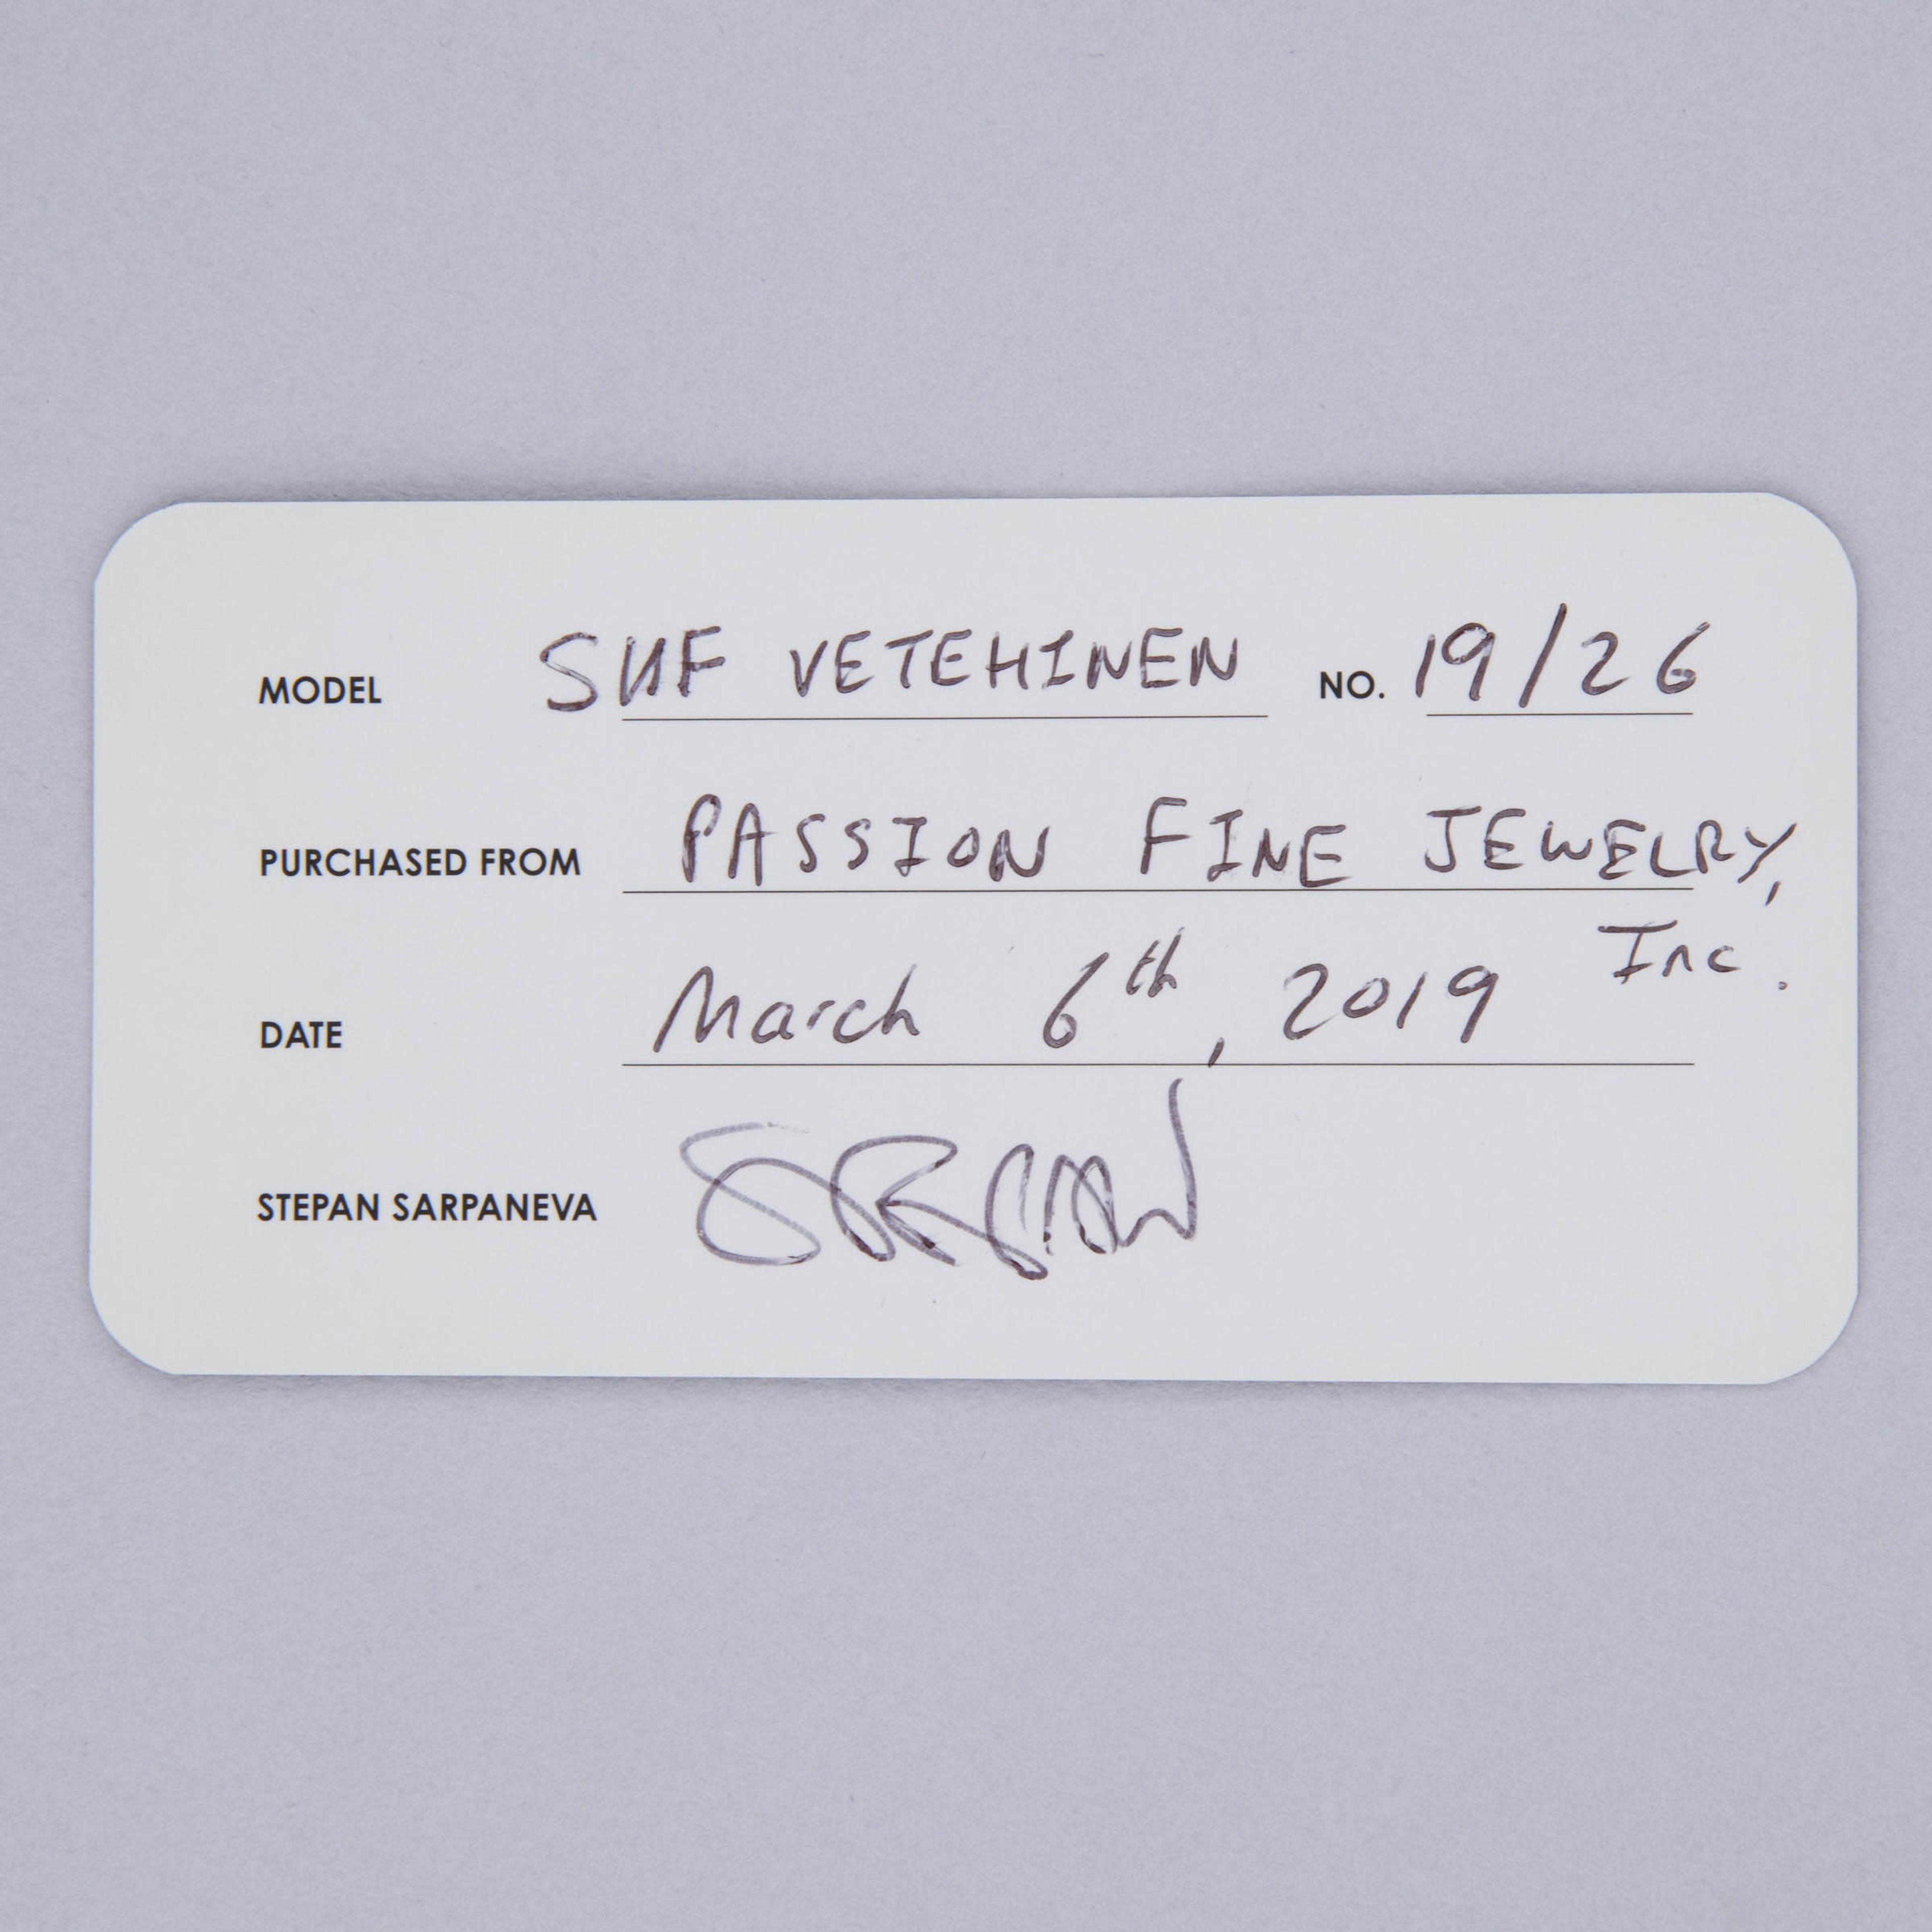 MODEL SUF VETEHINEN NO. 19/26
PURCHASED FROM PASSION FINE JEWELRY,
Inc.
DATE March 6th, 2019
STEPAN SARPANEVA